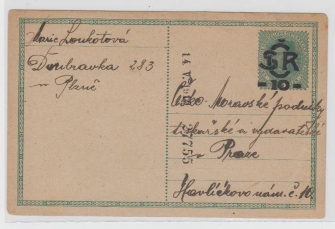 Marie Loukotová
Doubravka 283
u Plzně
ČSR
- 10 -
Česko-Moravské podniky
tiskařské a vydavatelské
v Praze
Havlíčkovo nám. č. 10.